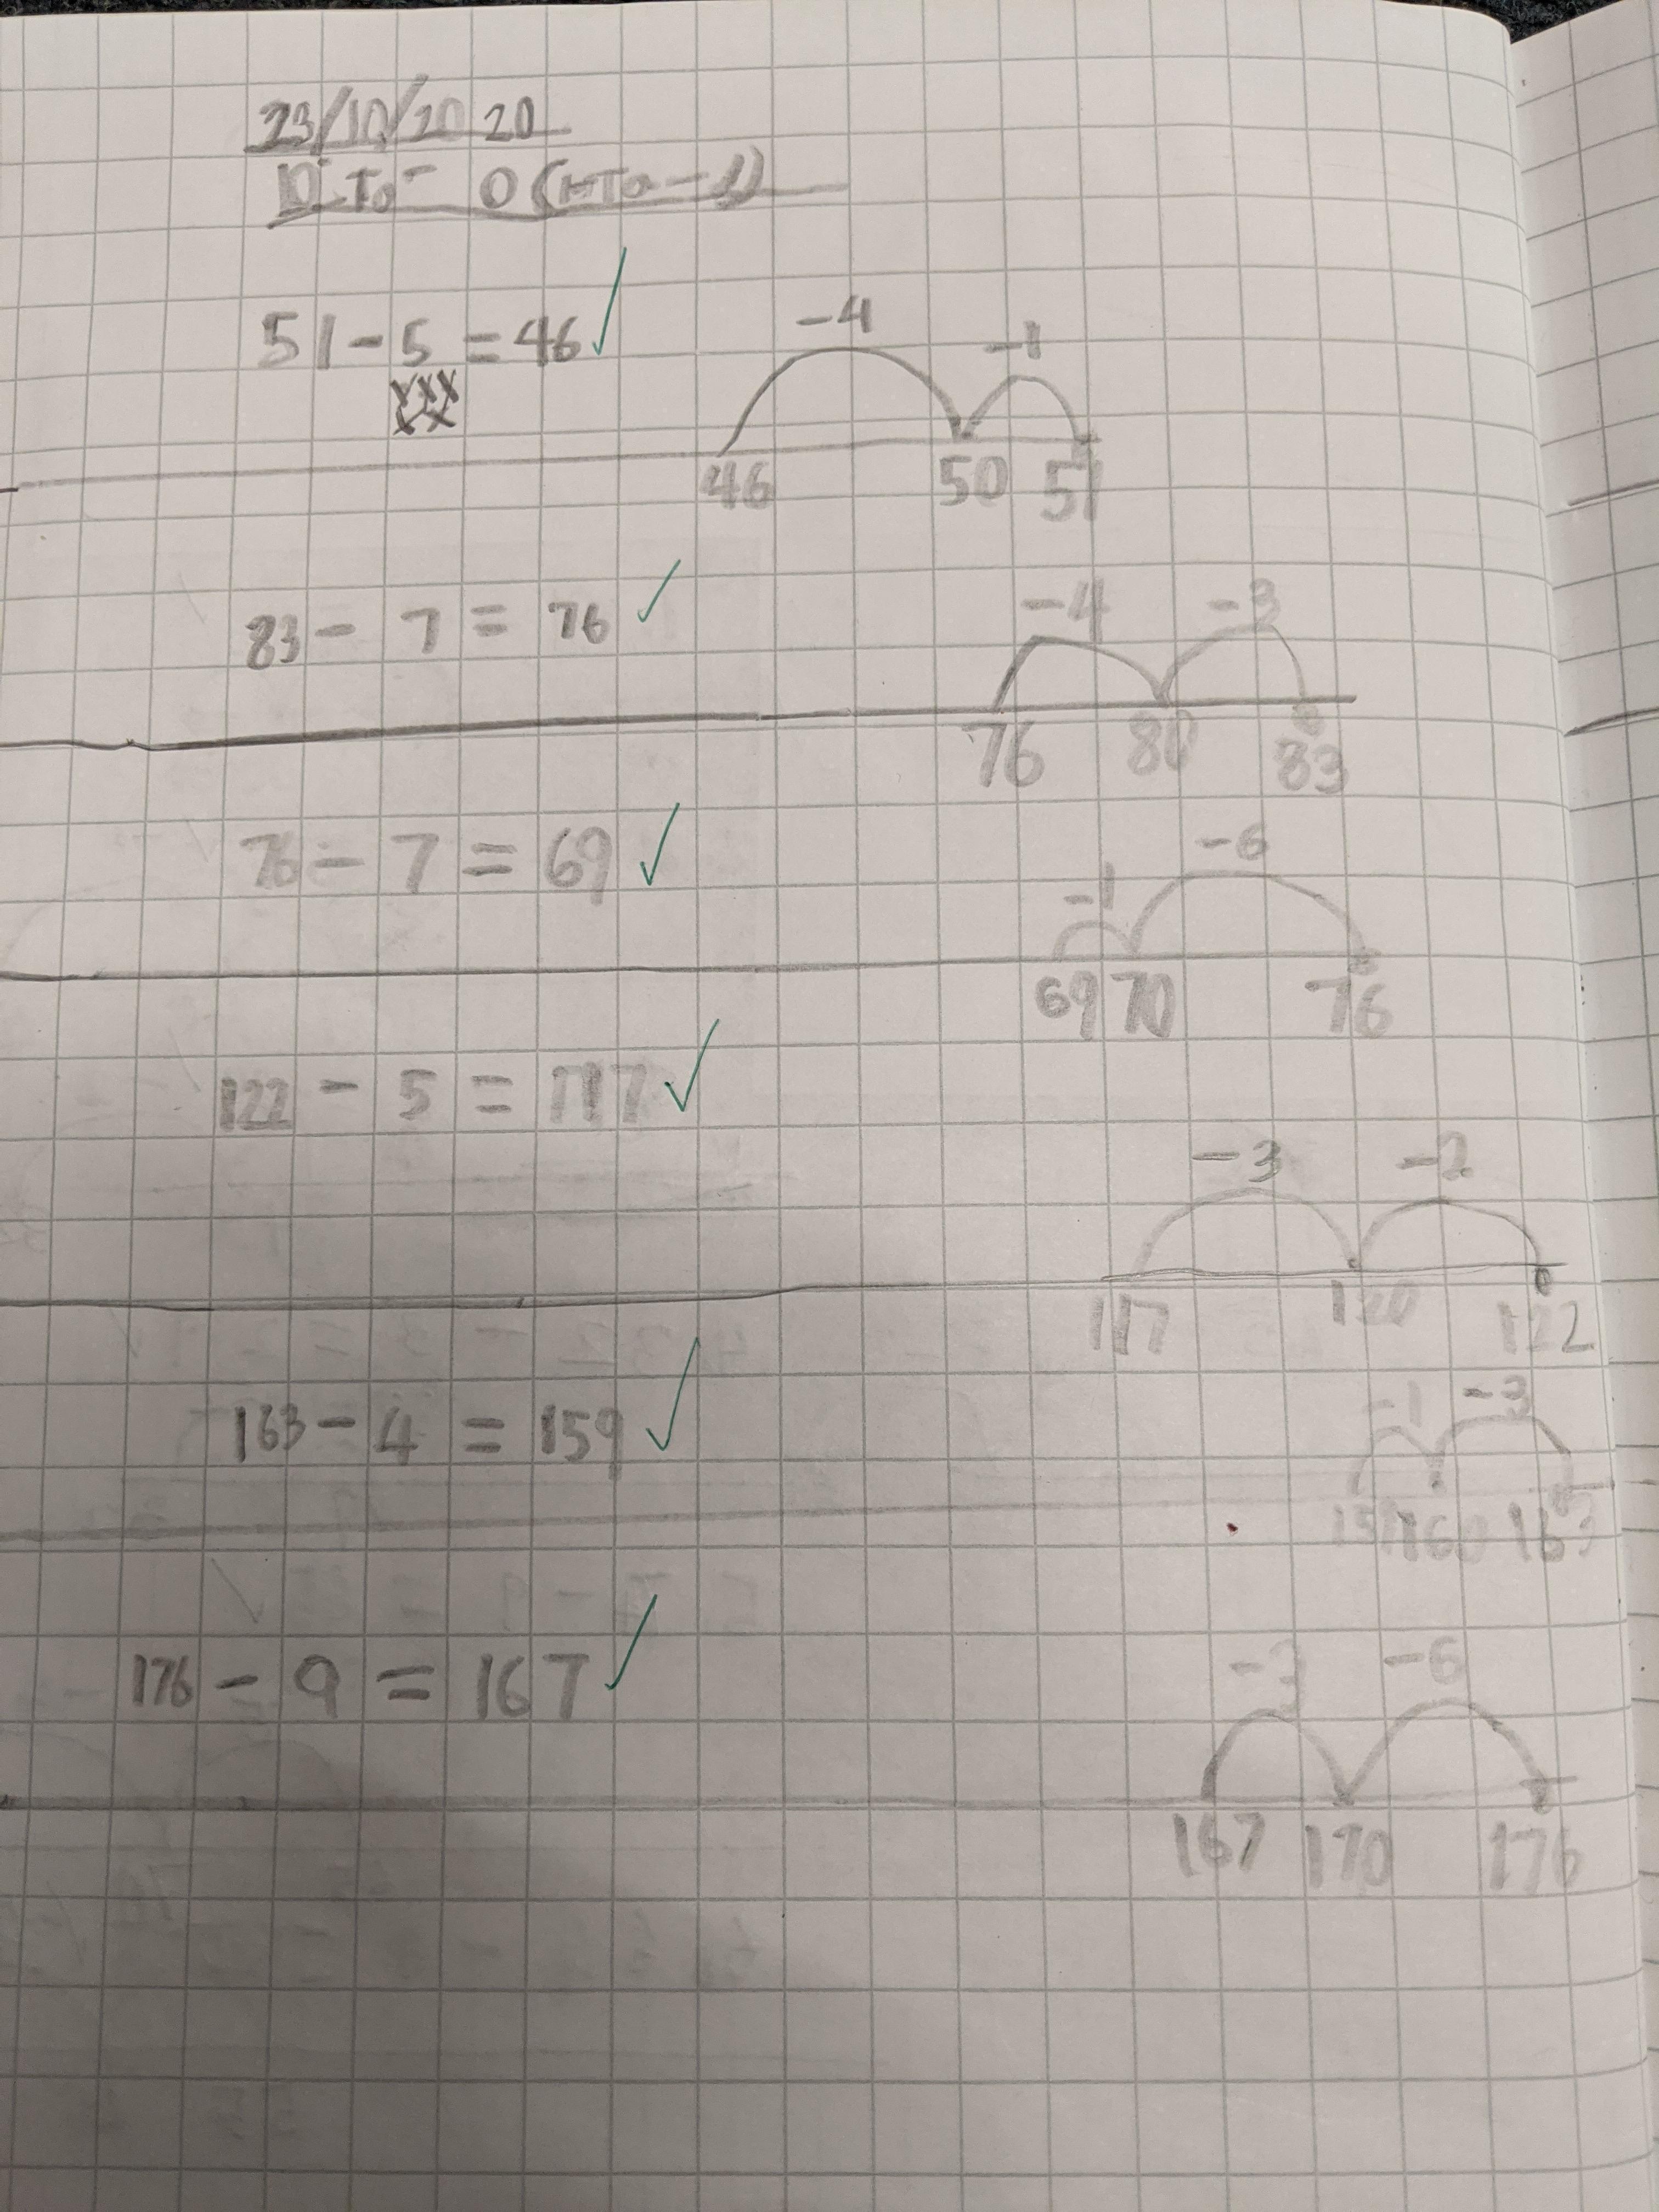 23/10/2020
To - O (HTO - 1)
51 - 5 = 46
-4 -1
46 50 51
83 - 7 = 76
-4 -3
76 80 83
76 - 7 = 69
-1 -6
69 70 76
122 - 5 = 117
-3 -2
117 120 122
163 - 4 = 159
-1 -3
159 160 163
176 - 9 = 167
-3 -6
167 170 176